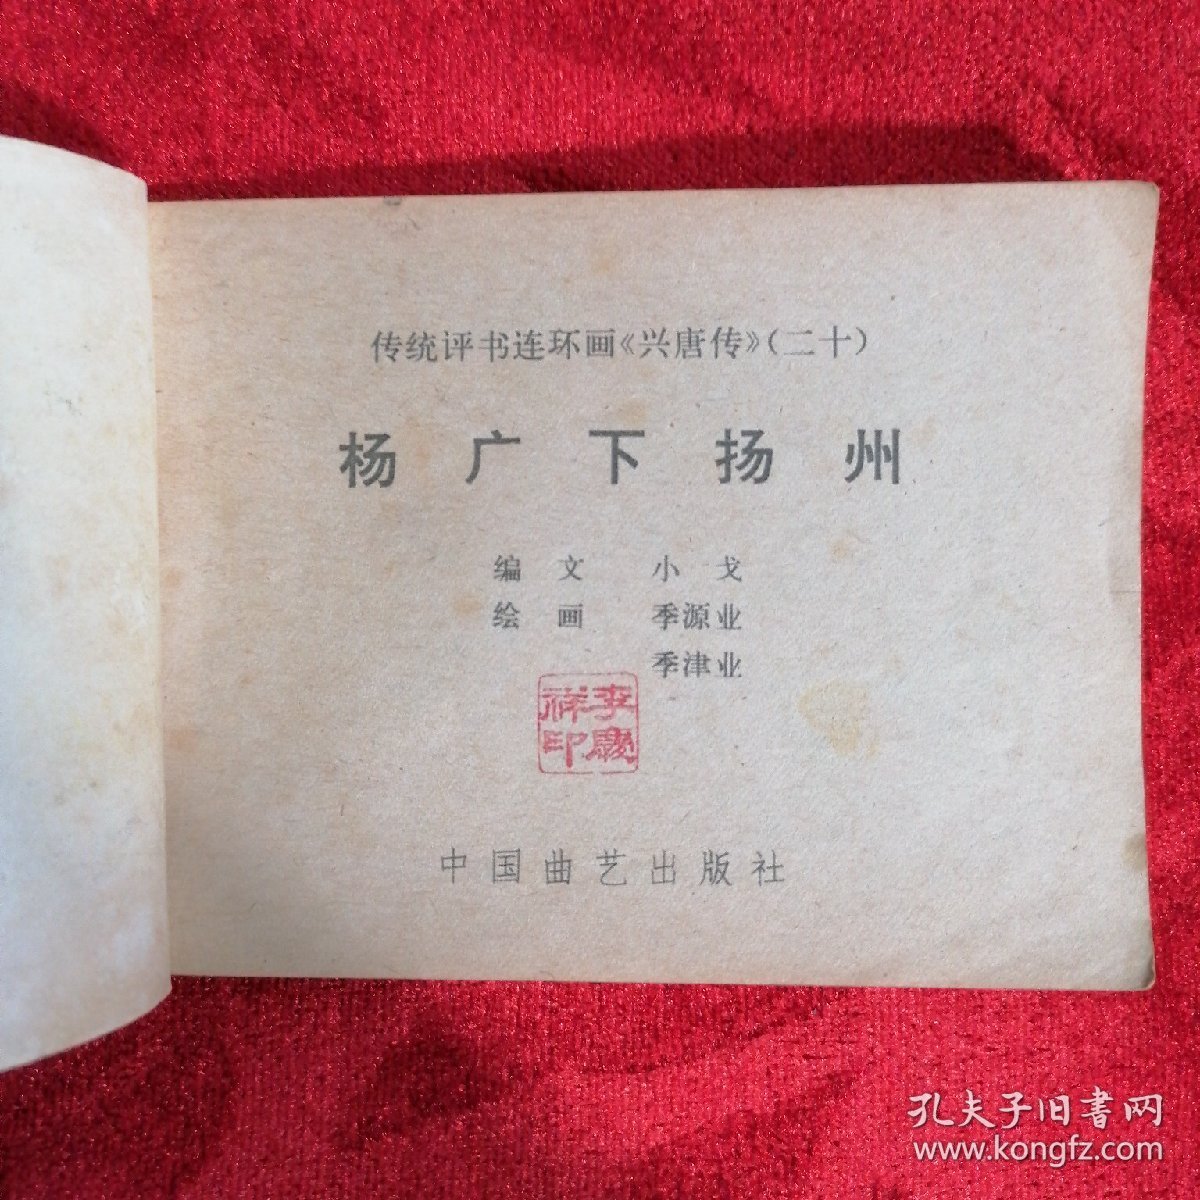 传统评书连环画《兴唐传》(二十)
杨广下扬州
编文 小戈
绘画 季源业
季津业
李庆祥印
中国曲艺出版社
孔夫子旧書网
www.kongfz.com